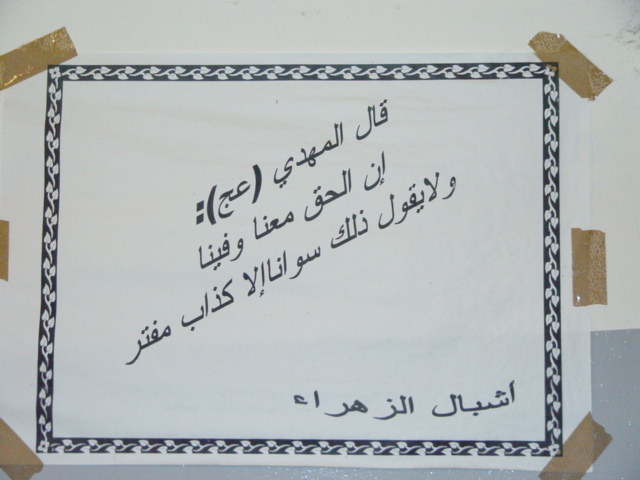 قال المهدي (عج):
إن الحق معنا وفينا
ولايقول ذلك سواناإلا كذاب مفتر
أشبال الزهراء